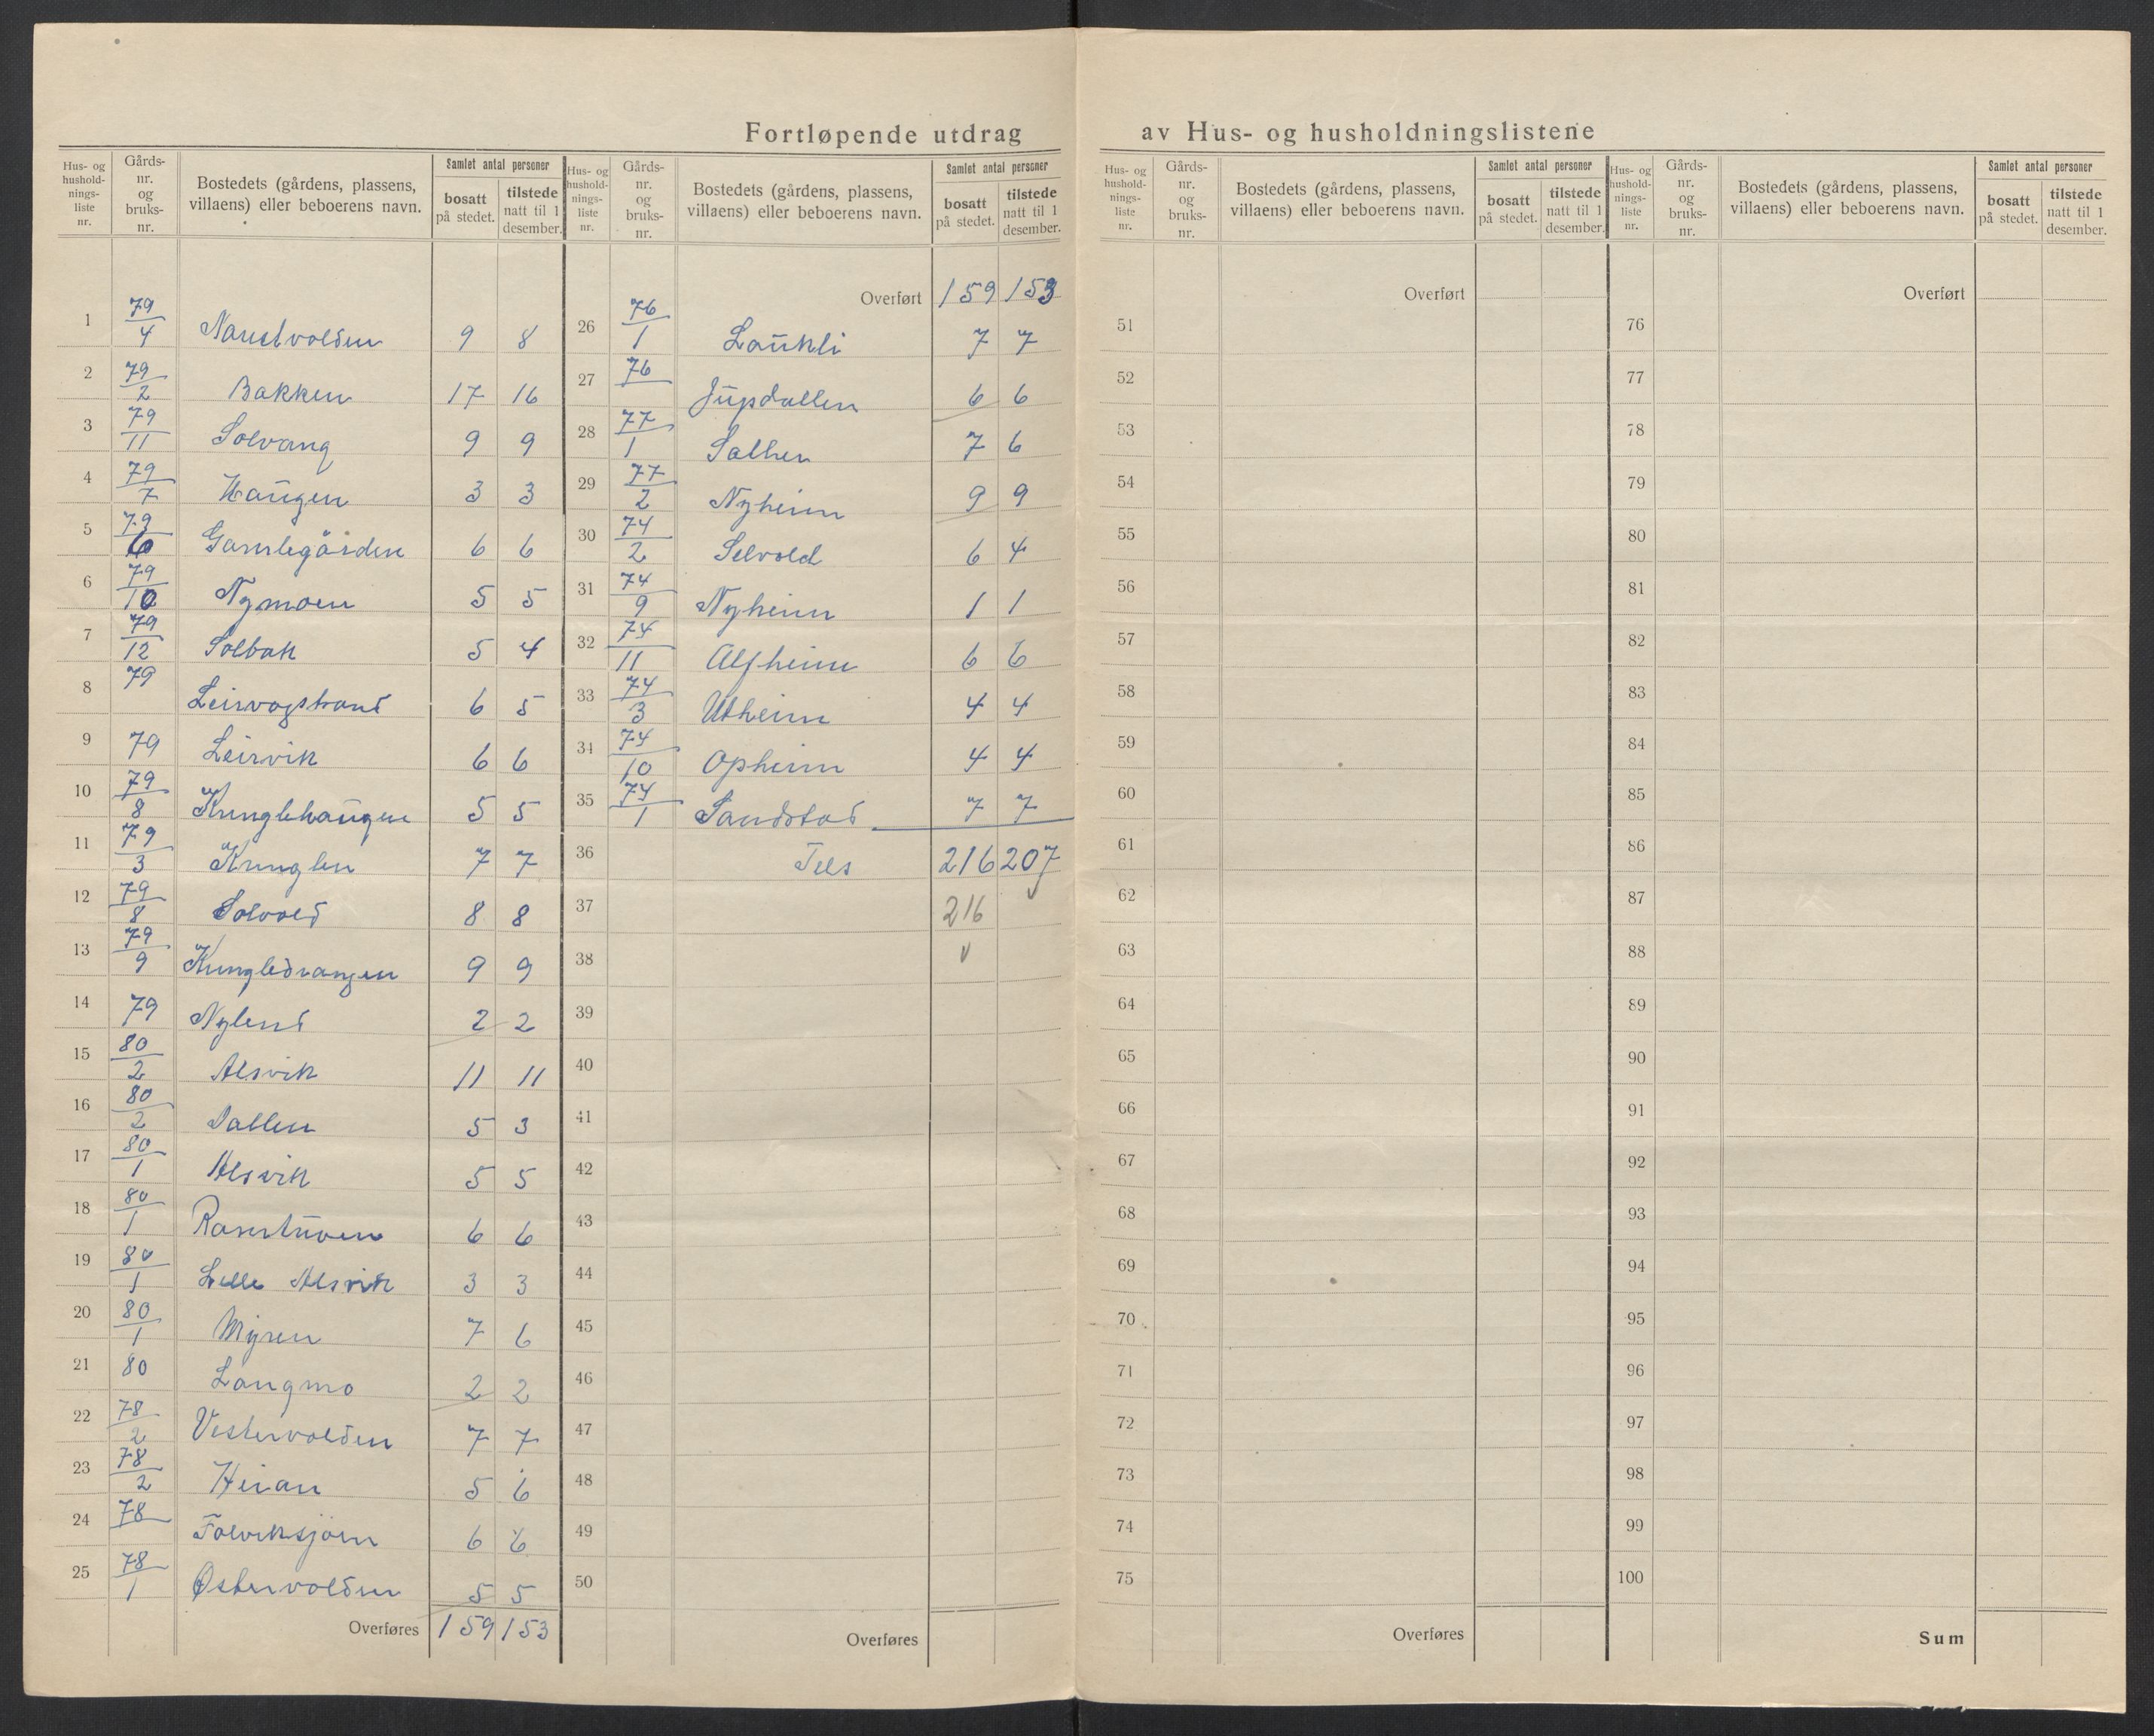 Fortløpende utdrag av Hus- og husholdningslistene
Hus- og husholdnings-liste nr. | Gårds-nr. og bruks-nr. | Bostedets (gårdens, plassens, villaens) eller beboerens navn. | Samlet antal personer | bosatt på stedet. | tilstede natt til 1 desember.
1 79/4 Naustvolden 9 8
2 79/2 Bakken 17 16
3 79/11 Solvang 9 9
4 79/7 Haugen 3 3
5 79/6 Gamlegården 6 6
6 79/10 Nymoen 5 5
7 79/12 Solbak 5 4
8 79 Leirvogstrand 6 5
9 79 Leirvik 6 6
10 79/8 Kringlehaugen 5 5
11 79/3 Kringlen 7 7
12 79/8 Solvold 8 8
13 79/9 Kringledrangen 9 9
14 79 Nylend 2 2
15 80/2 Alsvik 11 11
16 80/2 Dallen 5 3
17 80/1 Alsvik 5 5
18 80/1 6 6
19 80/1 Lille Alsvik 3 3
20 80/1 Myren 7 6
21 80 Langmo 2 2
22 78/2 Vestervolden 7 7
23 78/2 5 6
24 78 6 6
25 78/1 Østervolden 5 5
Overføres 159 153
Hus- og husholdnings-liste nr. | Gårds-nr. og bruks-nr. | Bostedets (gårdens, plassens, villaens) eller beboerens navn. | Samlet antal personer | bosatt på stedet. | tilstede natt til 1 desember.
Overført 159 153
26 76/1 Laukli 7 7
27 76 Jupdallen 6 6
28 77/1 7 6
29 77/2 Nyheim 9 9
30 74/2 Selvold 6 4
31 74/9 Nyheim 1 1
32 74/11 Alfheim 6 6
33 74/3 Utheim 4 4
34 74/10 Opheim 4 4
35 74/1 Sandstad 7 7
36 Tils 216 207
37 216
38
39
40
41
42
43
44
45
46
47
48
49
50
Overføres
Hus- og husholdnings-liste nr. | Gårds-nr. og bruks-nr. | Bostedets (gårdens, plassens, villaens) eller beboerens navn. | Samlet antal personer | bosatt på stedet. | tilstede natt til 1 desember.
Overført
51
52
53
54
55
56
57
58
59
60
61
62
63
64
65
66
67
68
69
70
71
72
73
74
75
Overføres
Hus- og husholdnings-liste nr. | Gårds-nr. og bruks-nr. | Bostedets (gårdens, plassens, villaens) eller beboerens navn. | Samlet antal personer | bosatt på stedet. | tilstede natt til 1 desember.
Overført
76
77
78
79
80
81
82
83
84
85
86
87
88
89
90
91
92
93
94
95
96
97
98
99
100
Sum